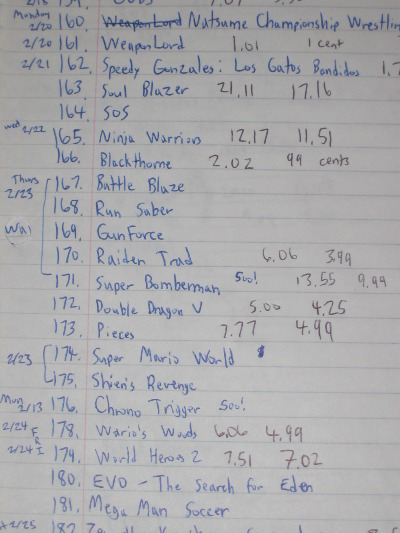 Monday 160. WeaponLord Natsume Championship Wrestlin
2/20
2/20 161. WeaponLord 1.01 1 cent
2/21 162. Speedy Gonzales: Los Gatos Bandidos 1.7
163. Soul Blazer 21.11 17.16
164. SOS
Wed 2/22 165. Ninja Warriors 12.17 11.51
166. Blackthorne 2.02 99 cents
Thurs 167. Battle Blaze
2/23 168. Run Saber
Wal 169. GunForce
170. Raiden Trad 6.06 3.99
171. Super Bomberman 500! 13.55 9.99
172. Double Dragon V 5.00 4.25
173. Pieces 7.77 4.99
2/23 174. Super Mario World
175. Shien's Revenge
Mon 2/13 176. Chrono Trigger 500!
2/24 F 178. Wario's Woods 6.06 4.99
R
2/24 I 179. World Heroes 2 7.51 7.02
180. EVO - The Search for Eden
181. Mega Man Soccer
2/25 182.